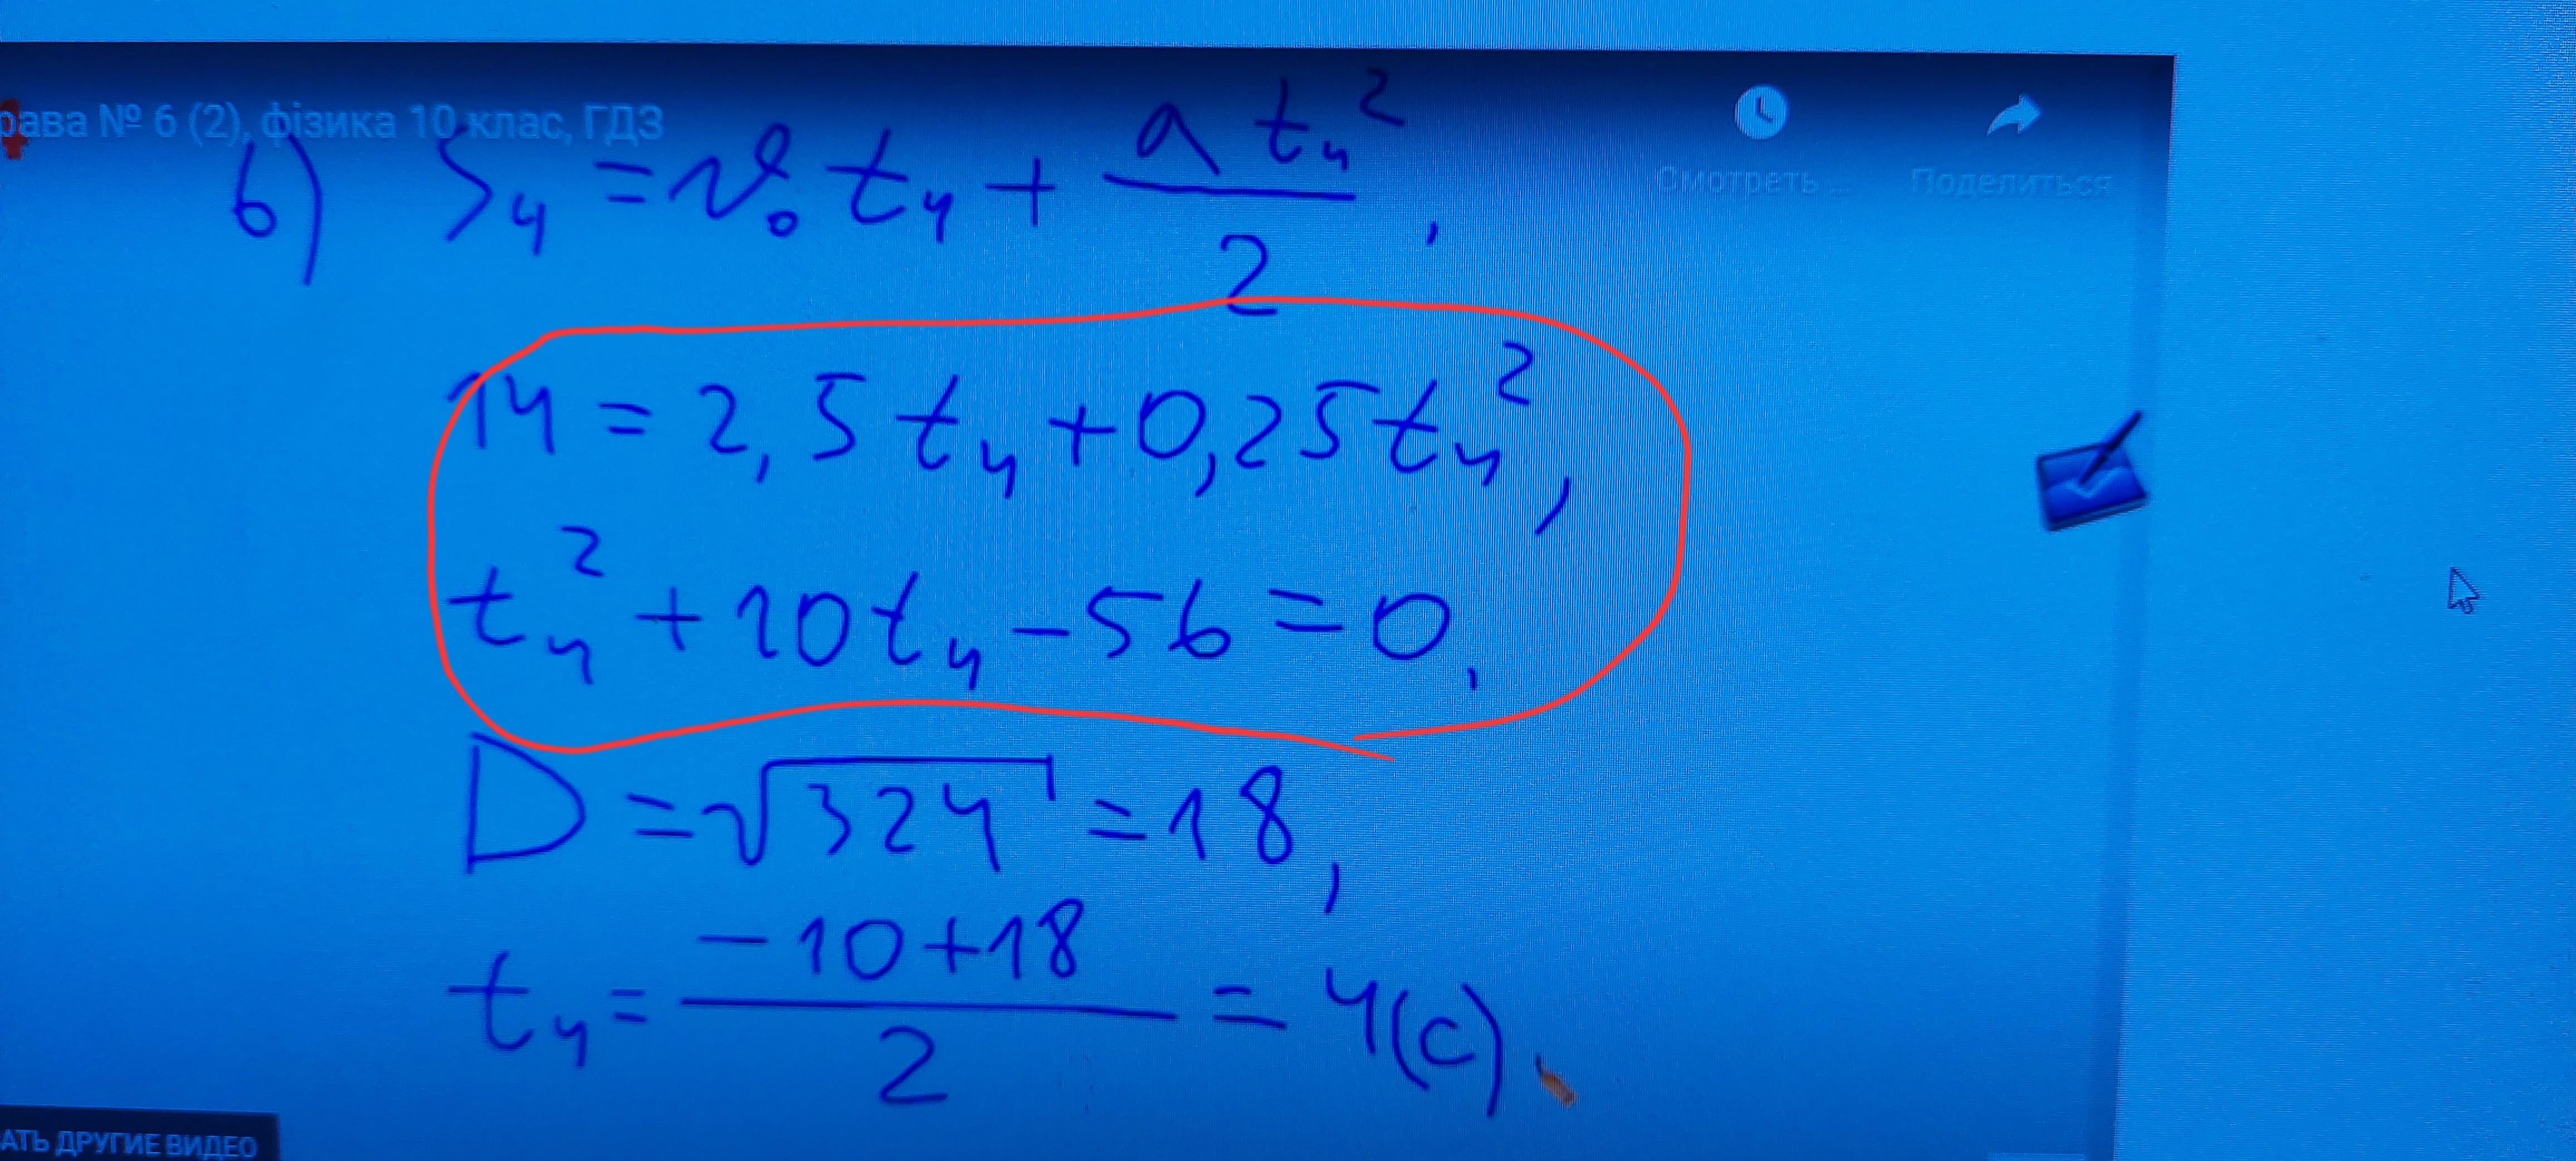 рава № 6 (2), фізика 10 клас, ГДЗ
Смотреть ...
Поделиться
б) S₄ = v₀ t₄ + a t₄² / 2,
14 = 2,5 t₄ + 0,25 t₄²,
t₄² + 10 t₄ - 56 = 0,
D = √324 = 18,
t₄ = -10 + 18 / 2 = 4 (с).
АТЬ ДРУГИЕ ВИДЕО